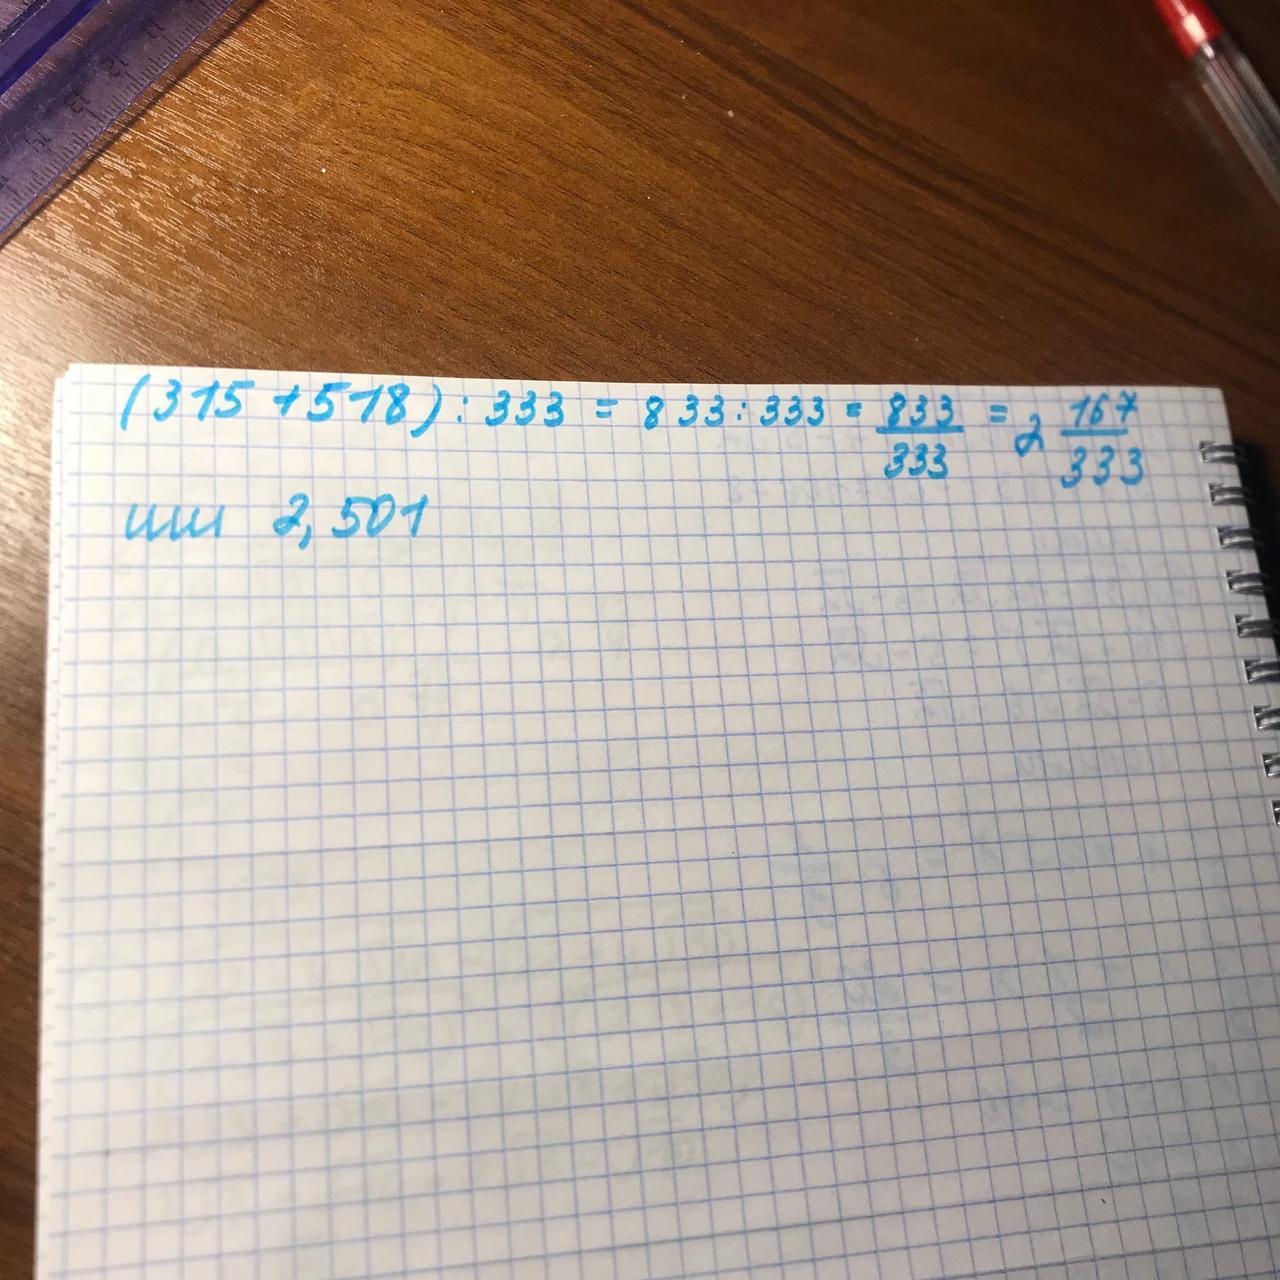 (315 + 518) : 333 = 833 : 333 = 833/333 = 2 167/333
или 2,501